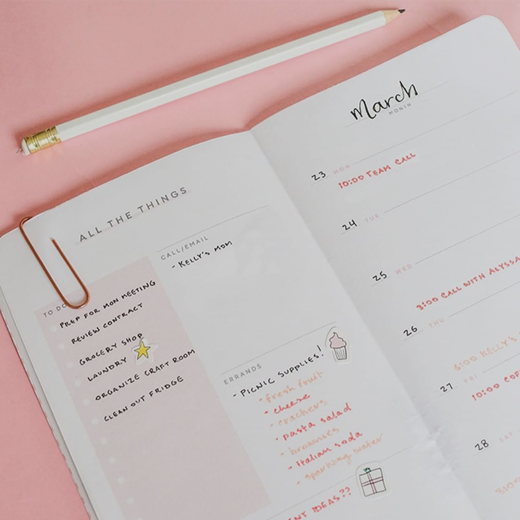 ALL THE THINGS
TO DO
PREP FOR MON MEETING
REVIEW CONTRACT
GROCERY SHOP
LAUNDRY
ORGANIZE CRAFT ROOM
CLEAN OUT FRIDGE
CALL/EMAIL
- KELLY'S MOM
ERRANDS
- PICNIC SUPPLIES!
- fresh fruit
- cheese
- crackers
- pasta salad
- brownies
- Italian soda
- sparkling water
IDEAS??
March
MONTH
23 MON
10:00 TEAM CALL
24 TUE
25 WED
3:00 CALL WITH ALYSSA
26 THU
5:30 KELLY'S
27 FRI
10:00
28 SAT
5:00